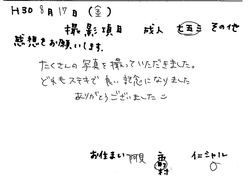 H30 8月17日(金)
撮影項目 成人 七五三 その他
感想をお願いします。
たくさんの写真を撮っていただきました。
どれもステキで良い記念になりました
ありがとうございました
お住まい 阿見 市 町 村 イニシャル O